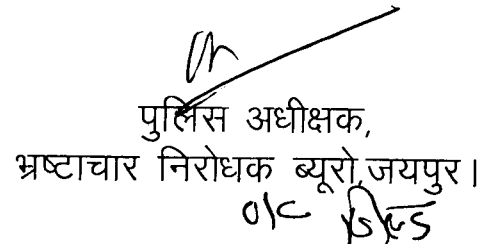 पुलिस अधीक्षक,
भ्रष्टाचार निरोधक ब्यूरो,जयपुर।
o/c